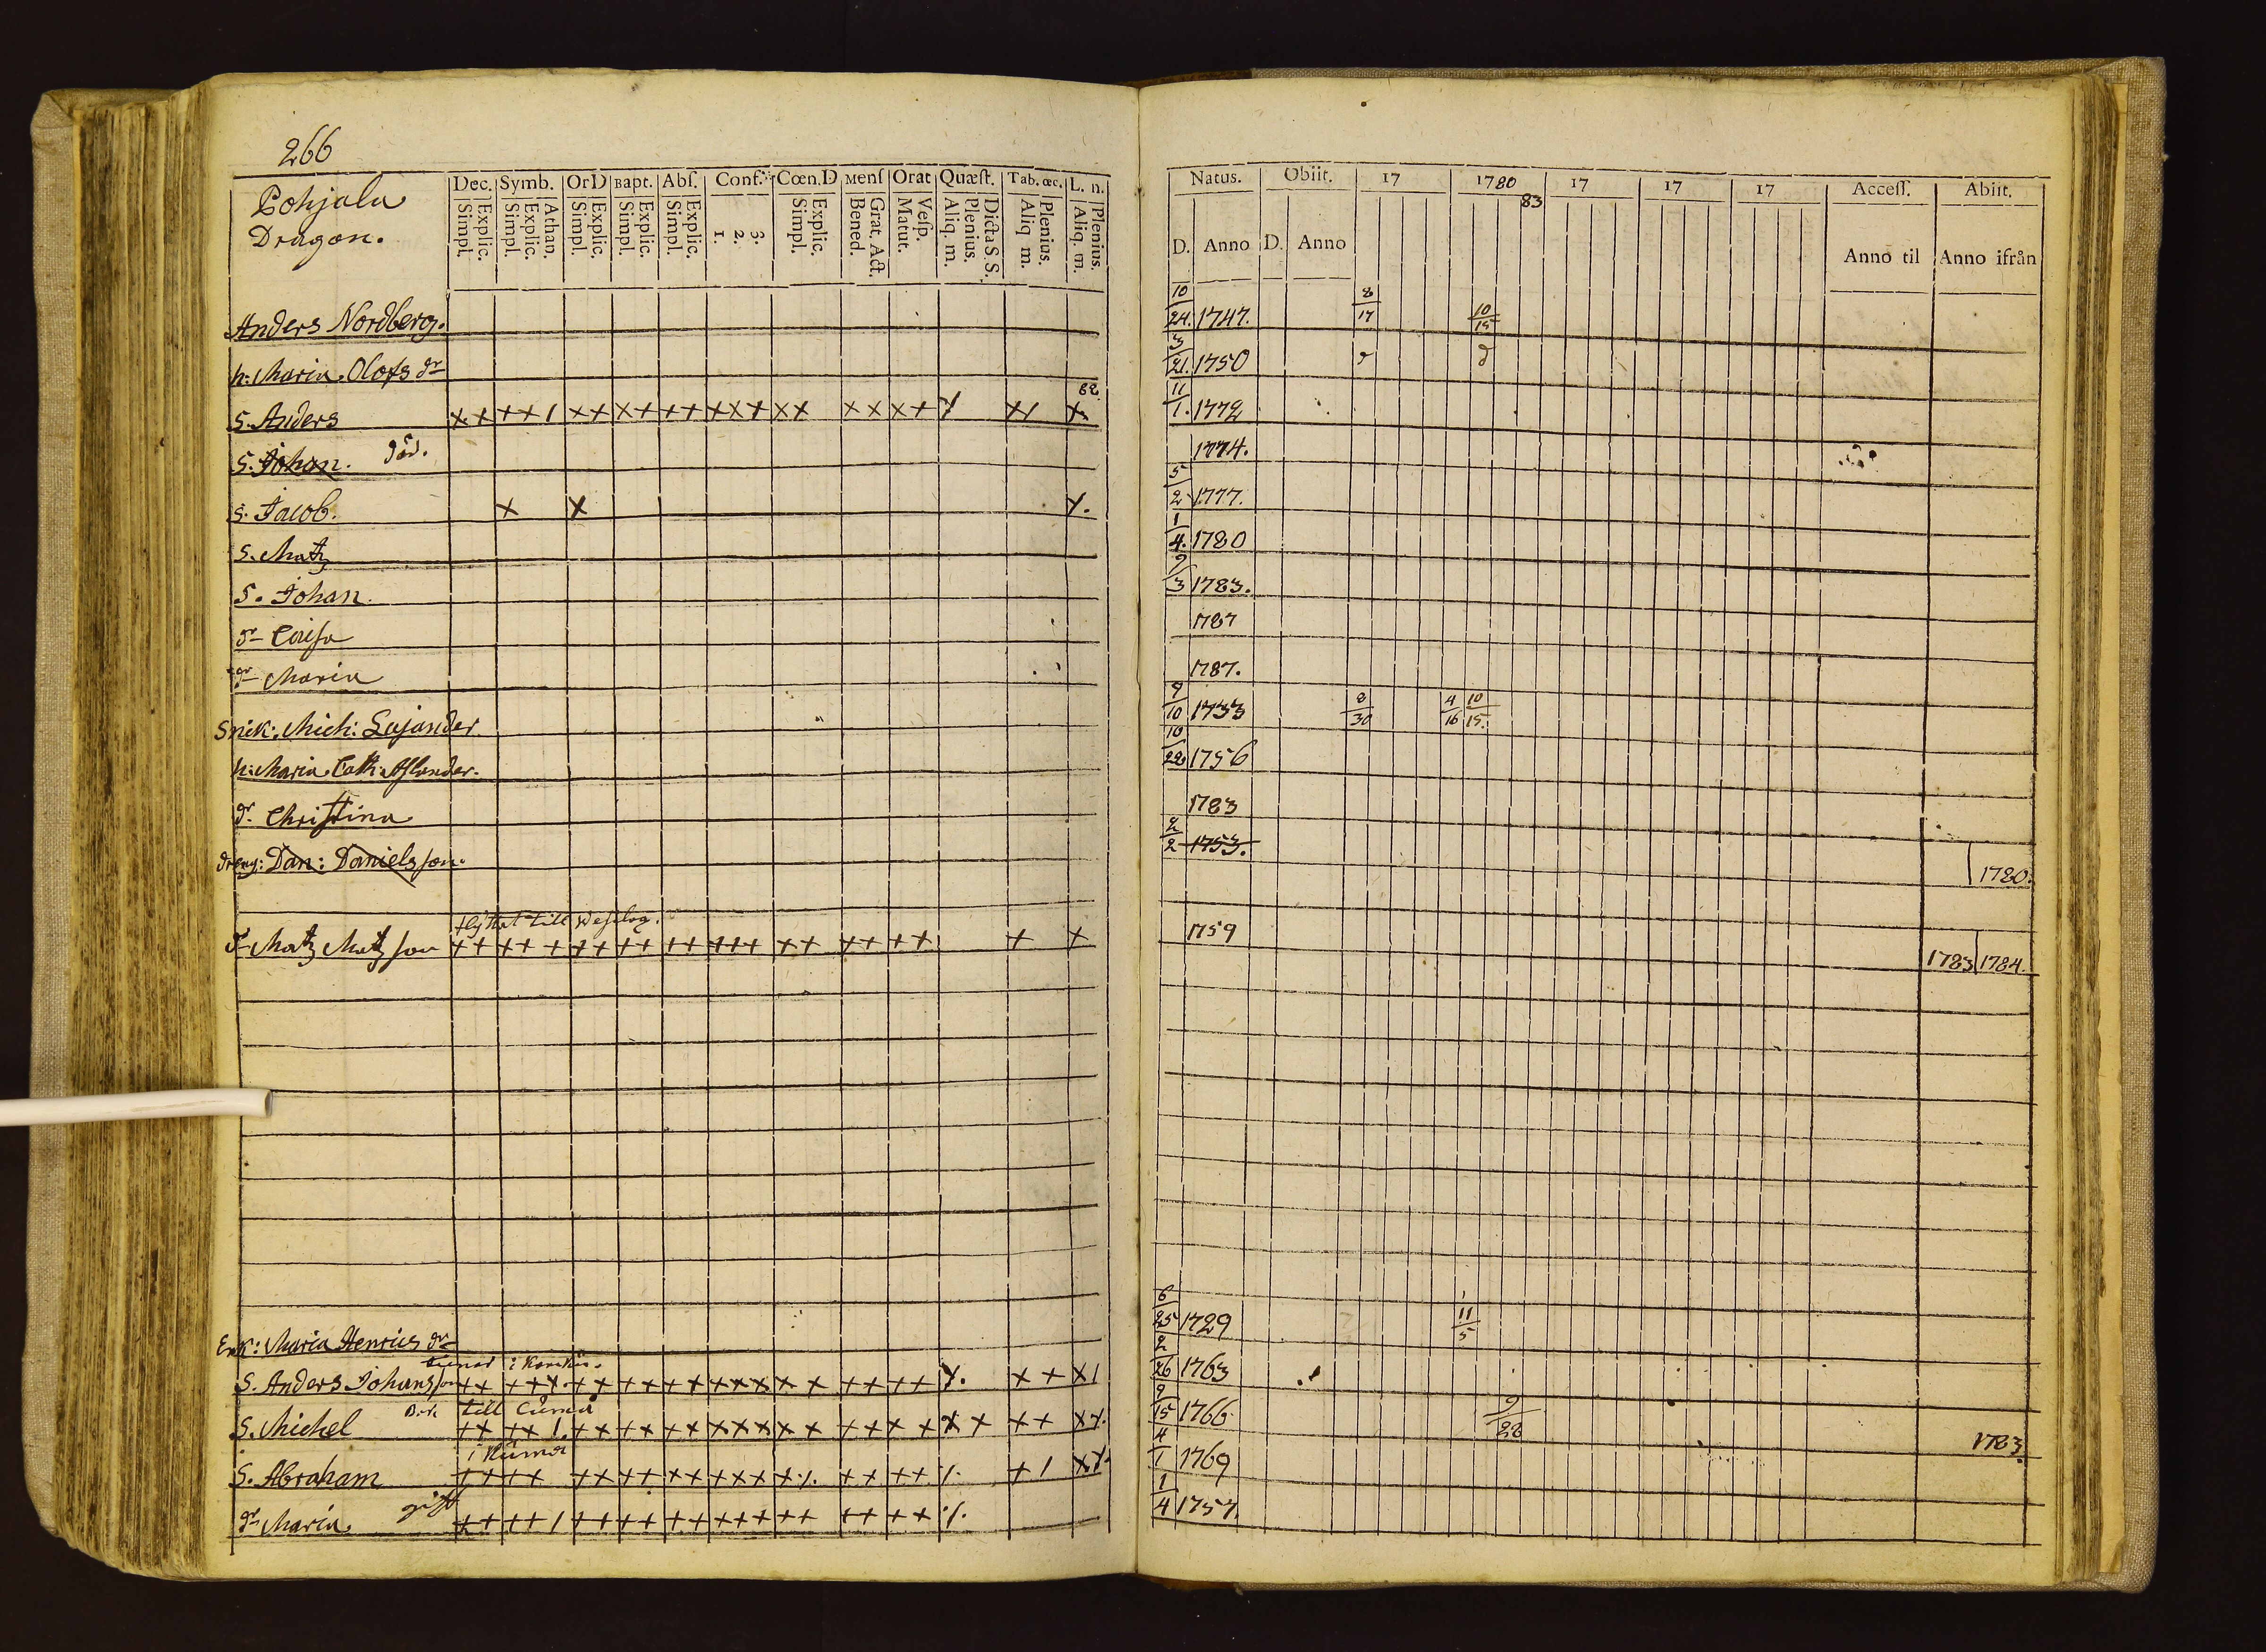 266
Pohjala
Dragon.
Dec. Symb. OrD Bapt. Abſ. Conf. Cœn.D Menſ Orat Quæſt. Tab. œc. L. n.
Simpl. Explic. Simpl. Explic. Athan. Simpl. Explic. Simpl. Explic. Simpl. Explic. 1. 2. 3. Simpl. Explic. Bened. Grat. Act. Matut. Veſp. Aliq. m. Plenius. Dicta S S. Aliq m. Plenius. Aliq. m. Plenius.
Natus. Obiit. 17 1780 17 17 17 Acceſſ. Abiit.
83
D. Anno D. Anno Anno til Anno ifrån
Anders Nordberg. 10/24. 1747. 8/17 10/15
h: Maria Olofs dr 3/21. 1750 d d
S. Anders ++ ++/ ++ ++ ++ +++ ++ ++ ++ 82 11/1. 1772
S. Johan. död. 1774.
S. Jacob. x x 5/2 1777.
S. Matz 1/4. 1780
S. Johan. 9/3 1783.
dr Caisa 1787
dr Maria 1787.
Snik: Mich: Lajander 9/10 1733 8/30 4/16 10/15.
h: Maria Cath: 10/22 1756
dr Christina 1783
dreng: Dan: Danielsson. 2/2 1753. 1780.
flyttat till
dr Matz Matzson ++ +++ ++ ++ ++ +++ ++ ++ ++ + + 1759 1783 1784.
Enk: Maria Henrics dr 6/25 1729 11/5
S. Anders Johansson ++ +++ ++ ++ ++ +++ ++ ++ ++ ++ x/ 2/26 1763
till Cumo
S. Michel ++ ++/ ++ ++ ++ +++ ++ ++ ++ ++ ++ 9/15 1766. 9/28 1783.
i Kumo
S. Abraham ++ ++ ++ ++ ++ +++ ++ ++ +/ 4/1 1769
dr Maria. gift ++ ++/ ++ ++ ++ +++ ++ ++ ++ 1/4 1757.